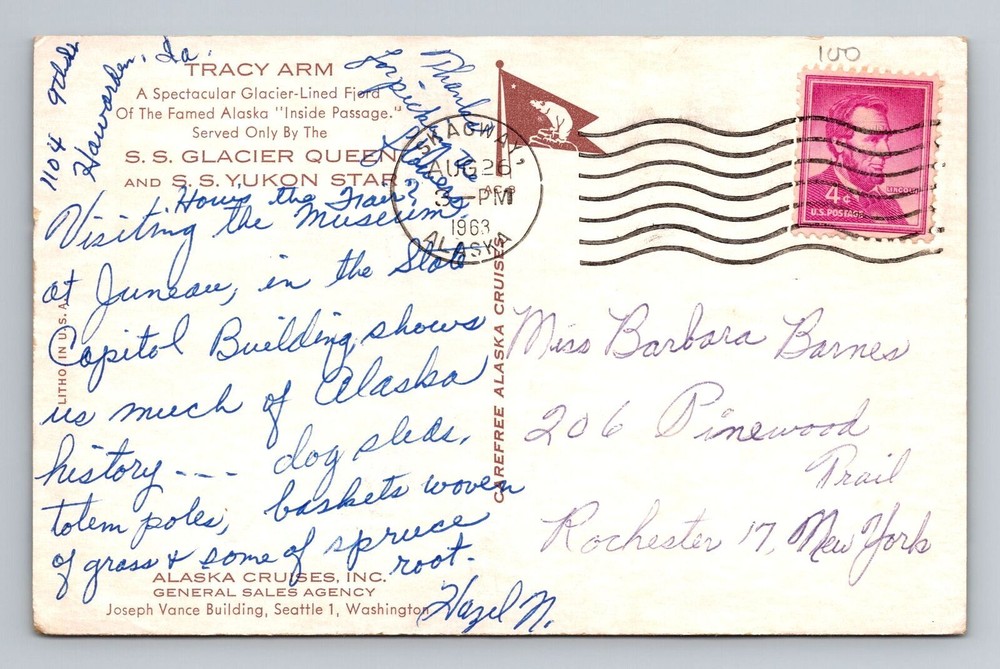 100
1104 9th St.
Hawarden, Ia.
Thanks
for picture
TRACY ARM
A Spectacular Glacier-Lined Fjord
Of The Famed Alaska "Inside Passage."
Served Only By The
S. S. GLACIER QUEEN
AND S. S. YUKON STAR
How's the Train?
Visiting the Museum,
at Juneau, in the State
Capitol Building, shows
us much of Alaska
history --- dog sleds,
totem poles, baskets woven
of grass & some of spruce
root.
Hazel N.
ALASKA CRUISES, INC.
GENERAL SALES AGENCY
Joseph Vance Building, Seattle 1, Washington
LITHO IN U.S.A.
CAREFREE ALASKA CRUISES
SKAGWAY,
AUG 26
3 - PM
1963
ALASKA
LINCOLN
4¢
U.S. POSTAGE
Miss Barbara Barnes
206 Pinewood
Trail
Rochester 17, New York